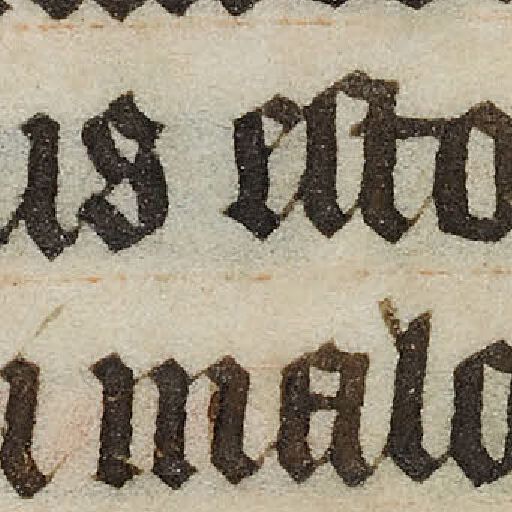 us esto
i malo